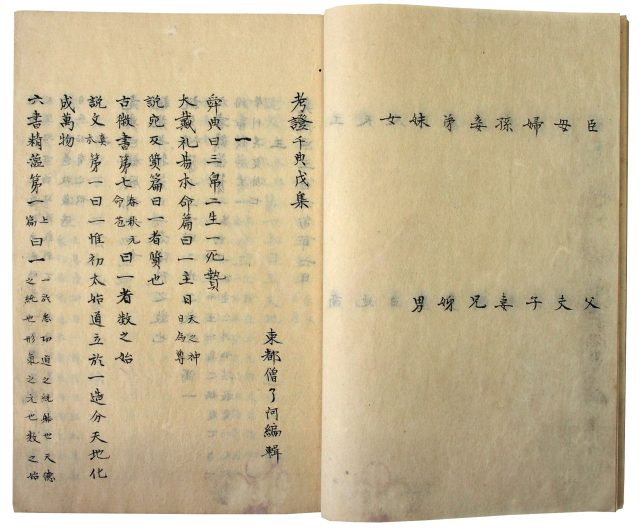 臣 父
母 夫
婦 子
孫 妻
妾 兄
弟 姊
妹 男
女
考證千典戊集
東都僧了阿編輯
一
舜典曰三帛二生一死贄
大戴礼易本命篇曰一主日天之神日為尊
説宛反質篇曰一者質也
古微書第七春秋元命苞曰一者数之始
説文本第一曰一惟初太始道立於一造分天地化
成萬物
六書精薀第一上篇曰一悉切道之統躰也天德之純也形氣之元也数之始